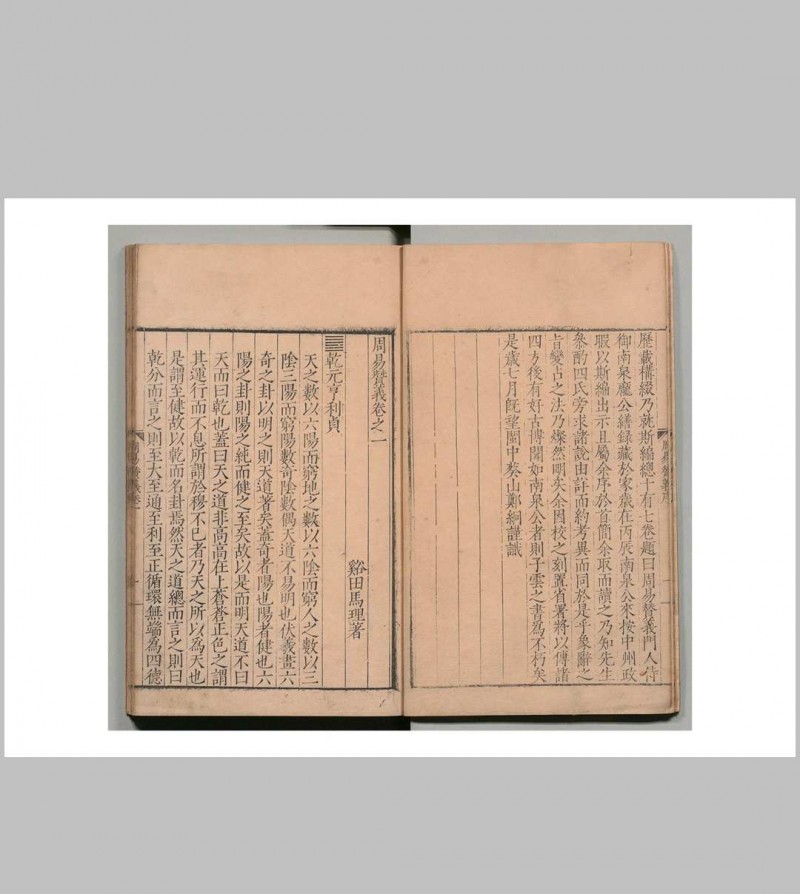 歷載構綴乃就斯編總十有七卷題曰周易贊義門人侍
御南泉龐公繕錄藏於家歲在丙辰南泉公來按中州政
暇以斯編出示且屬余序於首簡余取而讀之乃知先生
叅酌四氏旁求諸說由詳而約考異而同於是乎象辭之
旨變占之法乃燦然明矣余因校之刻置省署將以傳諸
四方後有好古博聞如南泉公者則子雲之書為不朽矣
是歲七月旣望關中葵山鄭絅謹識
周易贊義卷之一
谿田馬理著
䷀乾元亨利貞
天之數以六陽而窮地之數以六陰而窮人之數以三
陰三陽而窮陽數奇陰數偶天道不易明也伏羲畫六
奇之卦以明之則天道著矣蓋奇者陽也陽者健也六
陽之卦則陽之純而健之至矣故以是而明天道不曰
天而曰乾也蓋曰天之道非高高在上蒼蒼正色之謂
其運行而不息所謂於穆不已者乃天之所以為天也
是謂至健故以乾而名卦焉然天之道總而言之則曰
乾分而言之則至大至通至利至正循環無端為四德